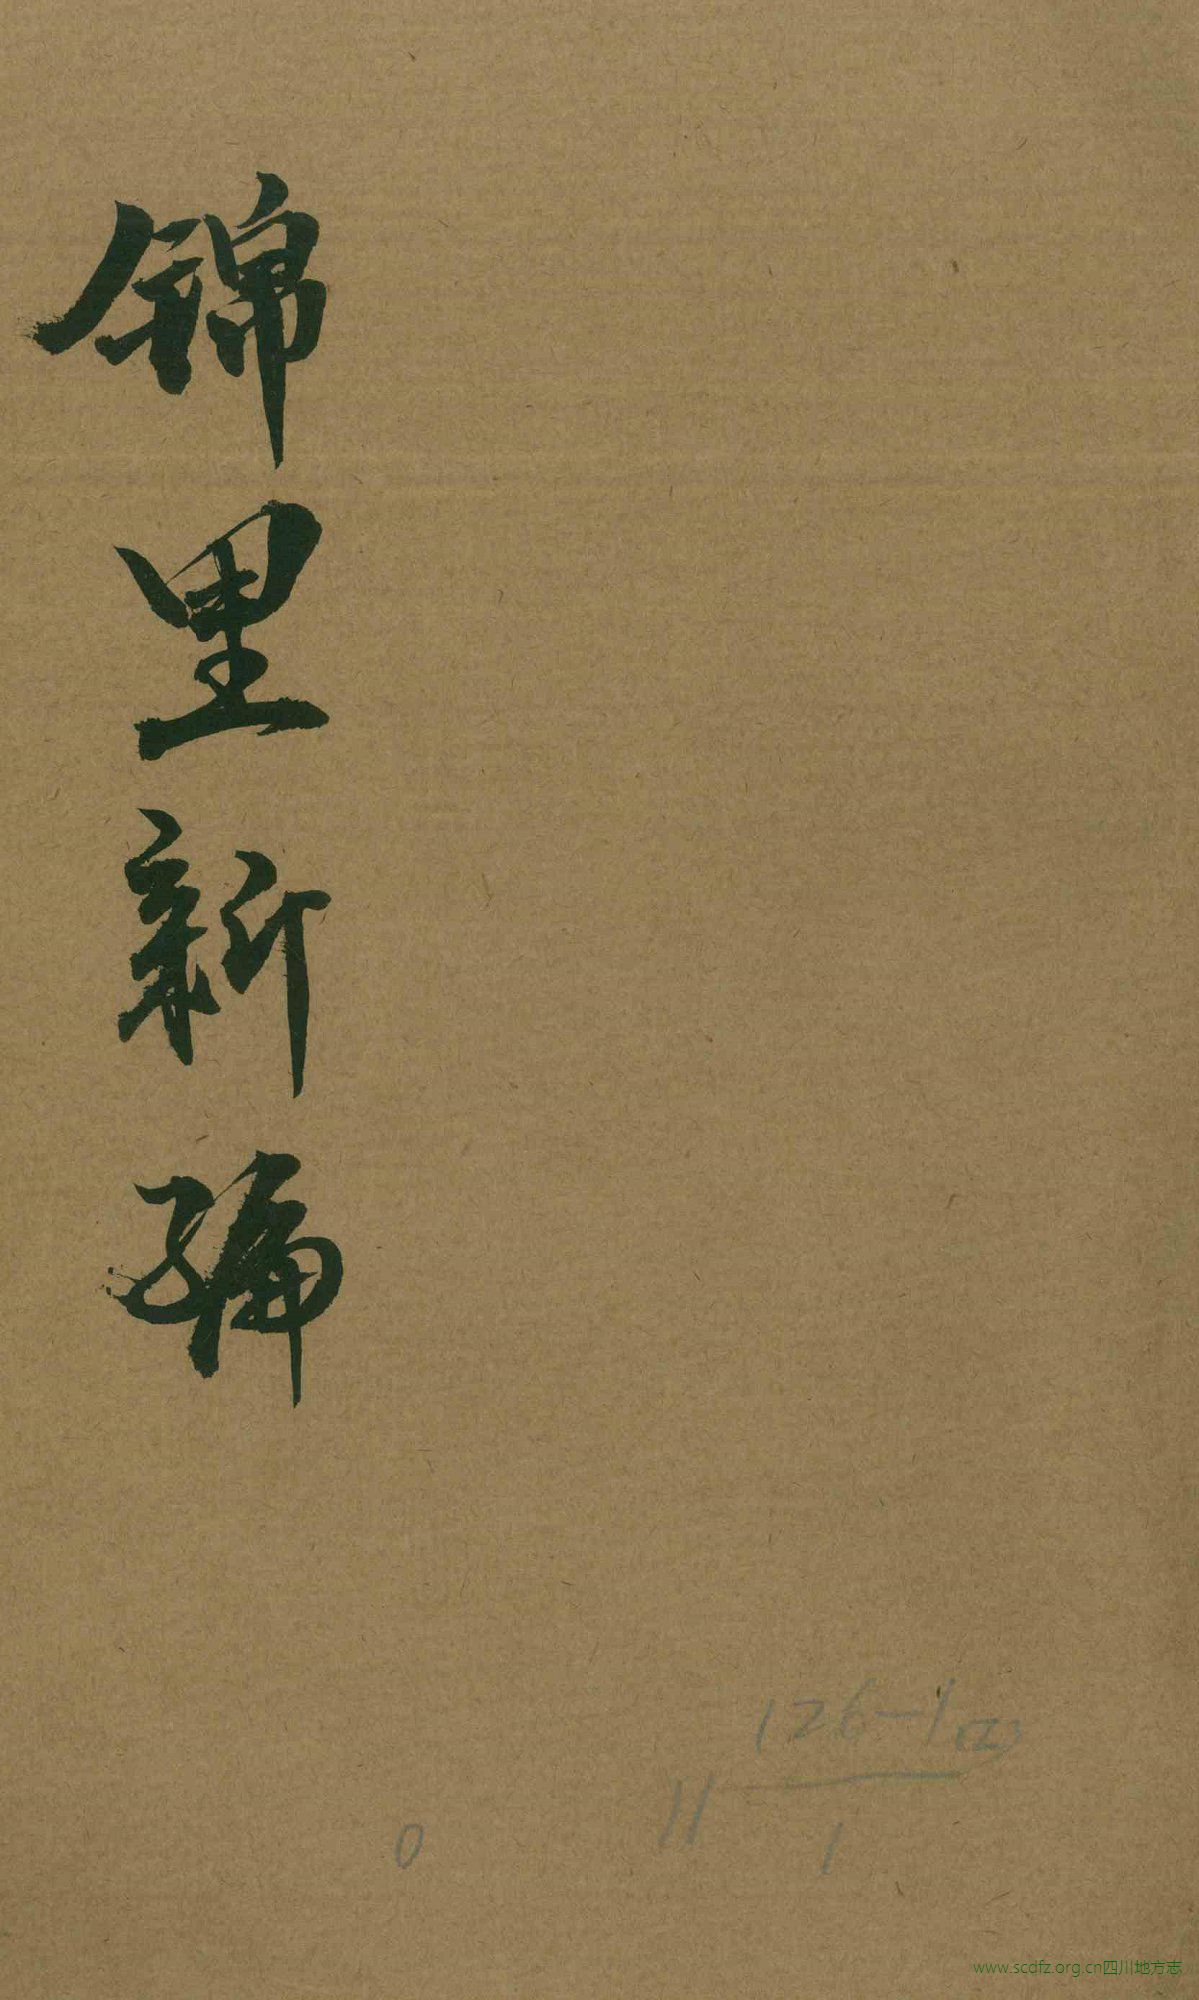 錦里新編
126-1(2)
11
1
0
www.scdfz.org.cn四川地方志